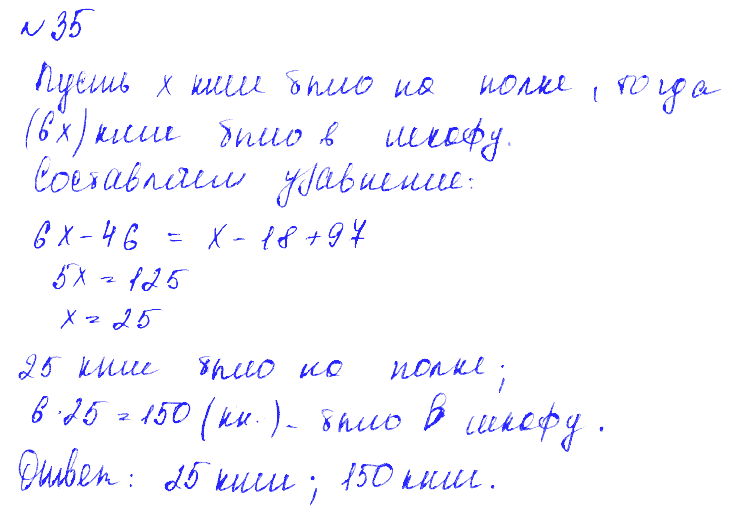 № 35
Пусть x книг было на полке, тогда
(6x) книг было в шкафу.
Составляем уравнение:
6x - 46 = x - 18 + 97
5x = 125
x = 25
25 книг было на полке;
6 · 25 = 150 (кн.) - было в шкафу.
Ответ: 25 книг; 150 книг.